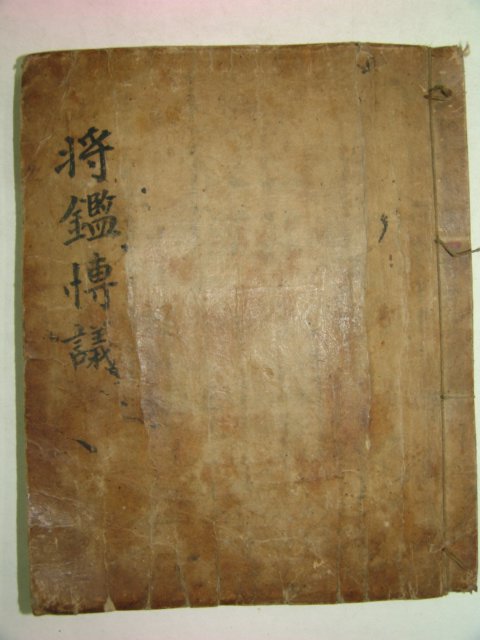 将鑑博議